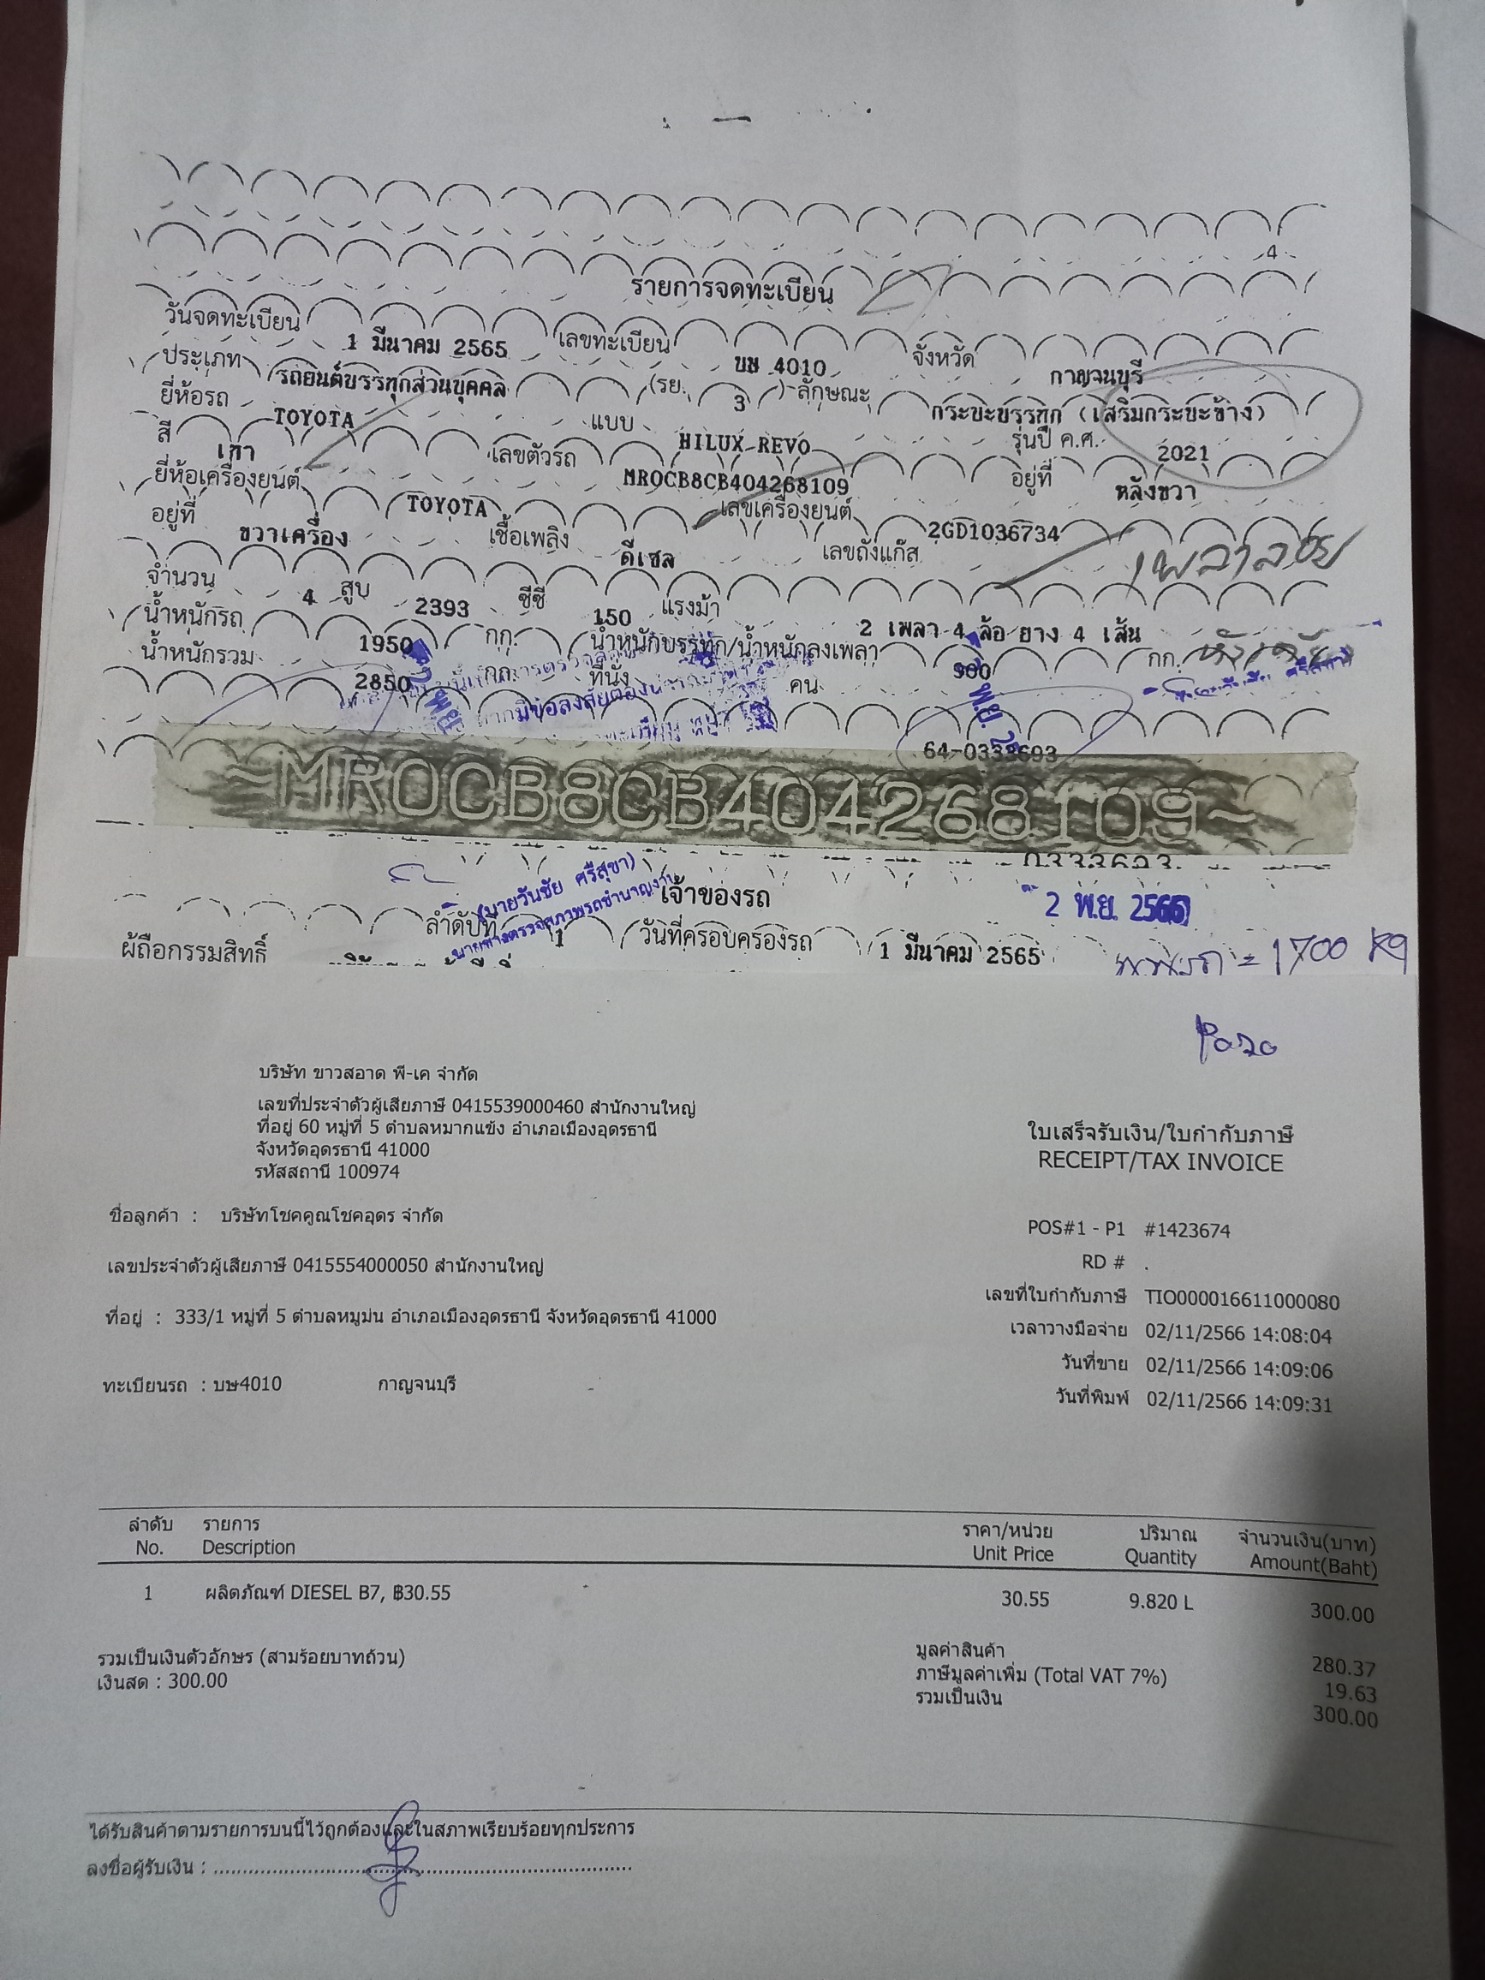 4
รายการจดทะเบียน
วันจดทะเบียน 1 มีนาคม 2565 เลขทะเบียน บษ 4010 จังหวัด กาญจนบุรี
ประเภท รถยนต์บรรทุกส่วนบุคคล (รย. 3 ) ลักษณะ กระบะบรรทุก (เสริมกระบะข้าง)
ยี่ห้อรถ TOYOTA แบบ HILUX REVO รุ่นปี ค.ศ. 2021
สี เทา เลขตัวรถ MR0CB8CB404268109 อยู่ที่ หลังขวา
ยี่ห้อเครื่องยนต์ TOYOTA เลขเครื่องยนต์ 2GD1036734
อยู่ที่ ขวาเครื่อง เชื้อเพลิง ดีเซล เลขถังแก๊ส
เพลาลอย
จำนวน 4 สูบ 2393 ซีซี 150 แรงม้า 2 เพลา 4 ล้อ ยาง 4 เส้น
น้ำหนักรถ 1950 กก. น้ำหนักบรรทุก/น้ำหนักลงเพลา 900 กก.
น้ำหนักรวม 2850 กก. ที่นั่ง คน
64-0333693
~MR0CB8CB404268109~
0333693
(นายวันชัย ศรีสุขา)
นายช่างตรวจสภาพรถชำนาญงาน
เจ้าของรถ
2 พ.ย. 2566
ลำดับที่ 1 วันที่ครอบครองรถ 1 มีนาคม 2565
ผู้ถือกรรมสิทธิ์
= 1700 kg
บริษัท ขาวสอาด พี-เค จำกัด
เลขที่ประจำตัวผู้เสียภาษี 0415539000460 สำนักงานใหญ่
ที่อยู่ 60 หมู่ที่ 5 ตำบลหมากแข้ง อำเภอเมืองอุดรธานี
จังหวัดอุดรธานี 41000
รหัสสถานี 100974
ใบเสร็จรับเงิน/ใบกำกับภาษี
RECEIPT/TAX INVOICE
ชื่อลูกค้า : บริษัทโชคคูณโชคอุดร จำกัด
POS#1 - P1 #1423674
เลขประจำตัวผู้เสียภาษี 0415554000050 สำนักงานใหญ่
RD # .
เลขที่ใบกำกับภาษี TIO000016611000080
ที่อยู่ : 333/1 หมู่ที่ 5 ตำบลหมูม่น อำเภอเมืองอุดรธานี จังหวัดอุดรธานี 41000
เวลาวางมือจ่าย 02/11/2566 14:08:04
วันที่ขาย 02/11/2566 14:09:06
ทะเบียนรถ : บษ4010 กาญจนบุรี
วันที่พิมพ์ 02/11/2566 14:09:31
ลำดับ รายการ ราคา/หน่วย ปริมาณ จำนวนเงิน(บาท)
No. Description Unit Price Quantity Amount(Baht)
1 ผลิตภัณฑ์ DIESEL B7, ฿30.55 30.55 9.820 L 300.00
รวมเป็นเงินตัวอักษร (สามร้อยบาทถ้วน) มูลค่าสินค้า 280.37
เงินสด : 300.00 ภาษีมูลค่าเพิ่ม (Total VAT 7%) 19.63
รวมเป็นเงิน 300.00
ได้รับสินค้าตามรายการบนนี้ไว้ถูกต้องและในสภาพเรียบร้อยทุกประการ
ลงชื่อผู้รับเงิน :